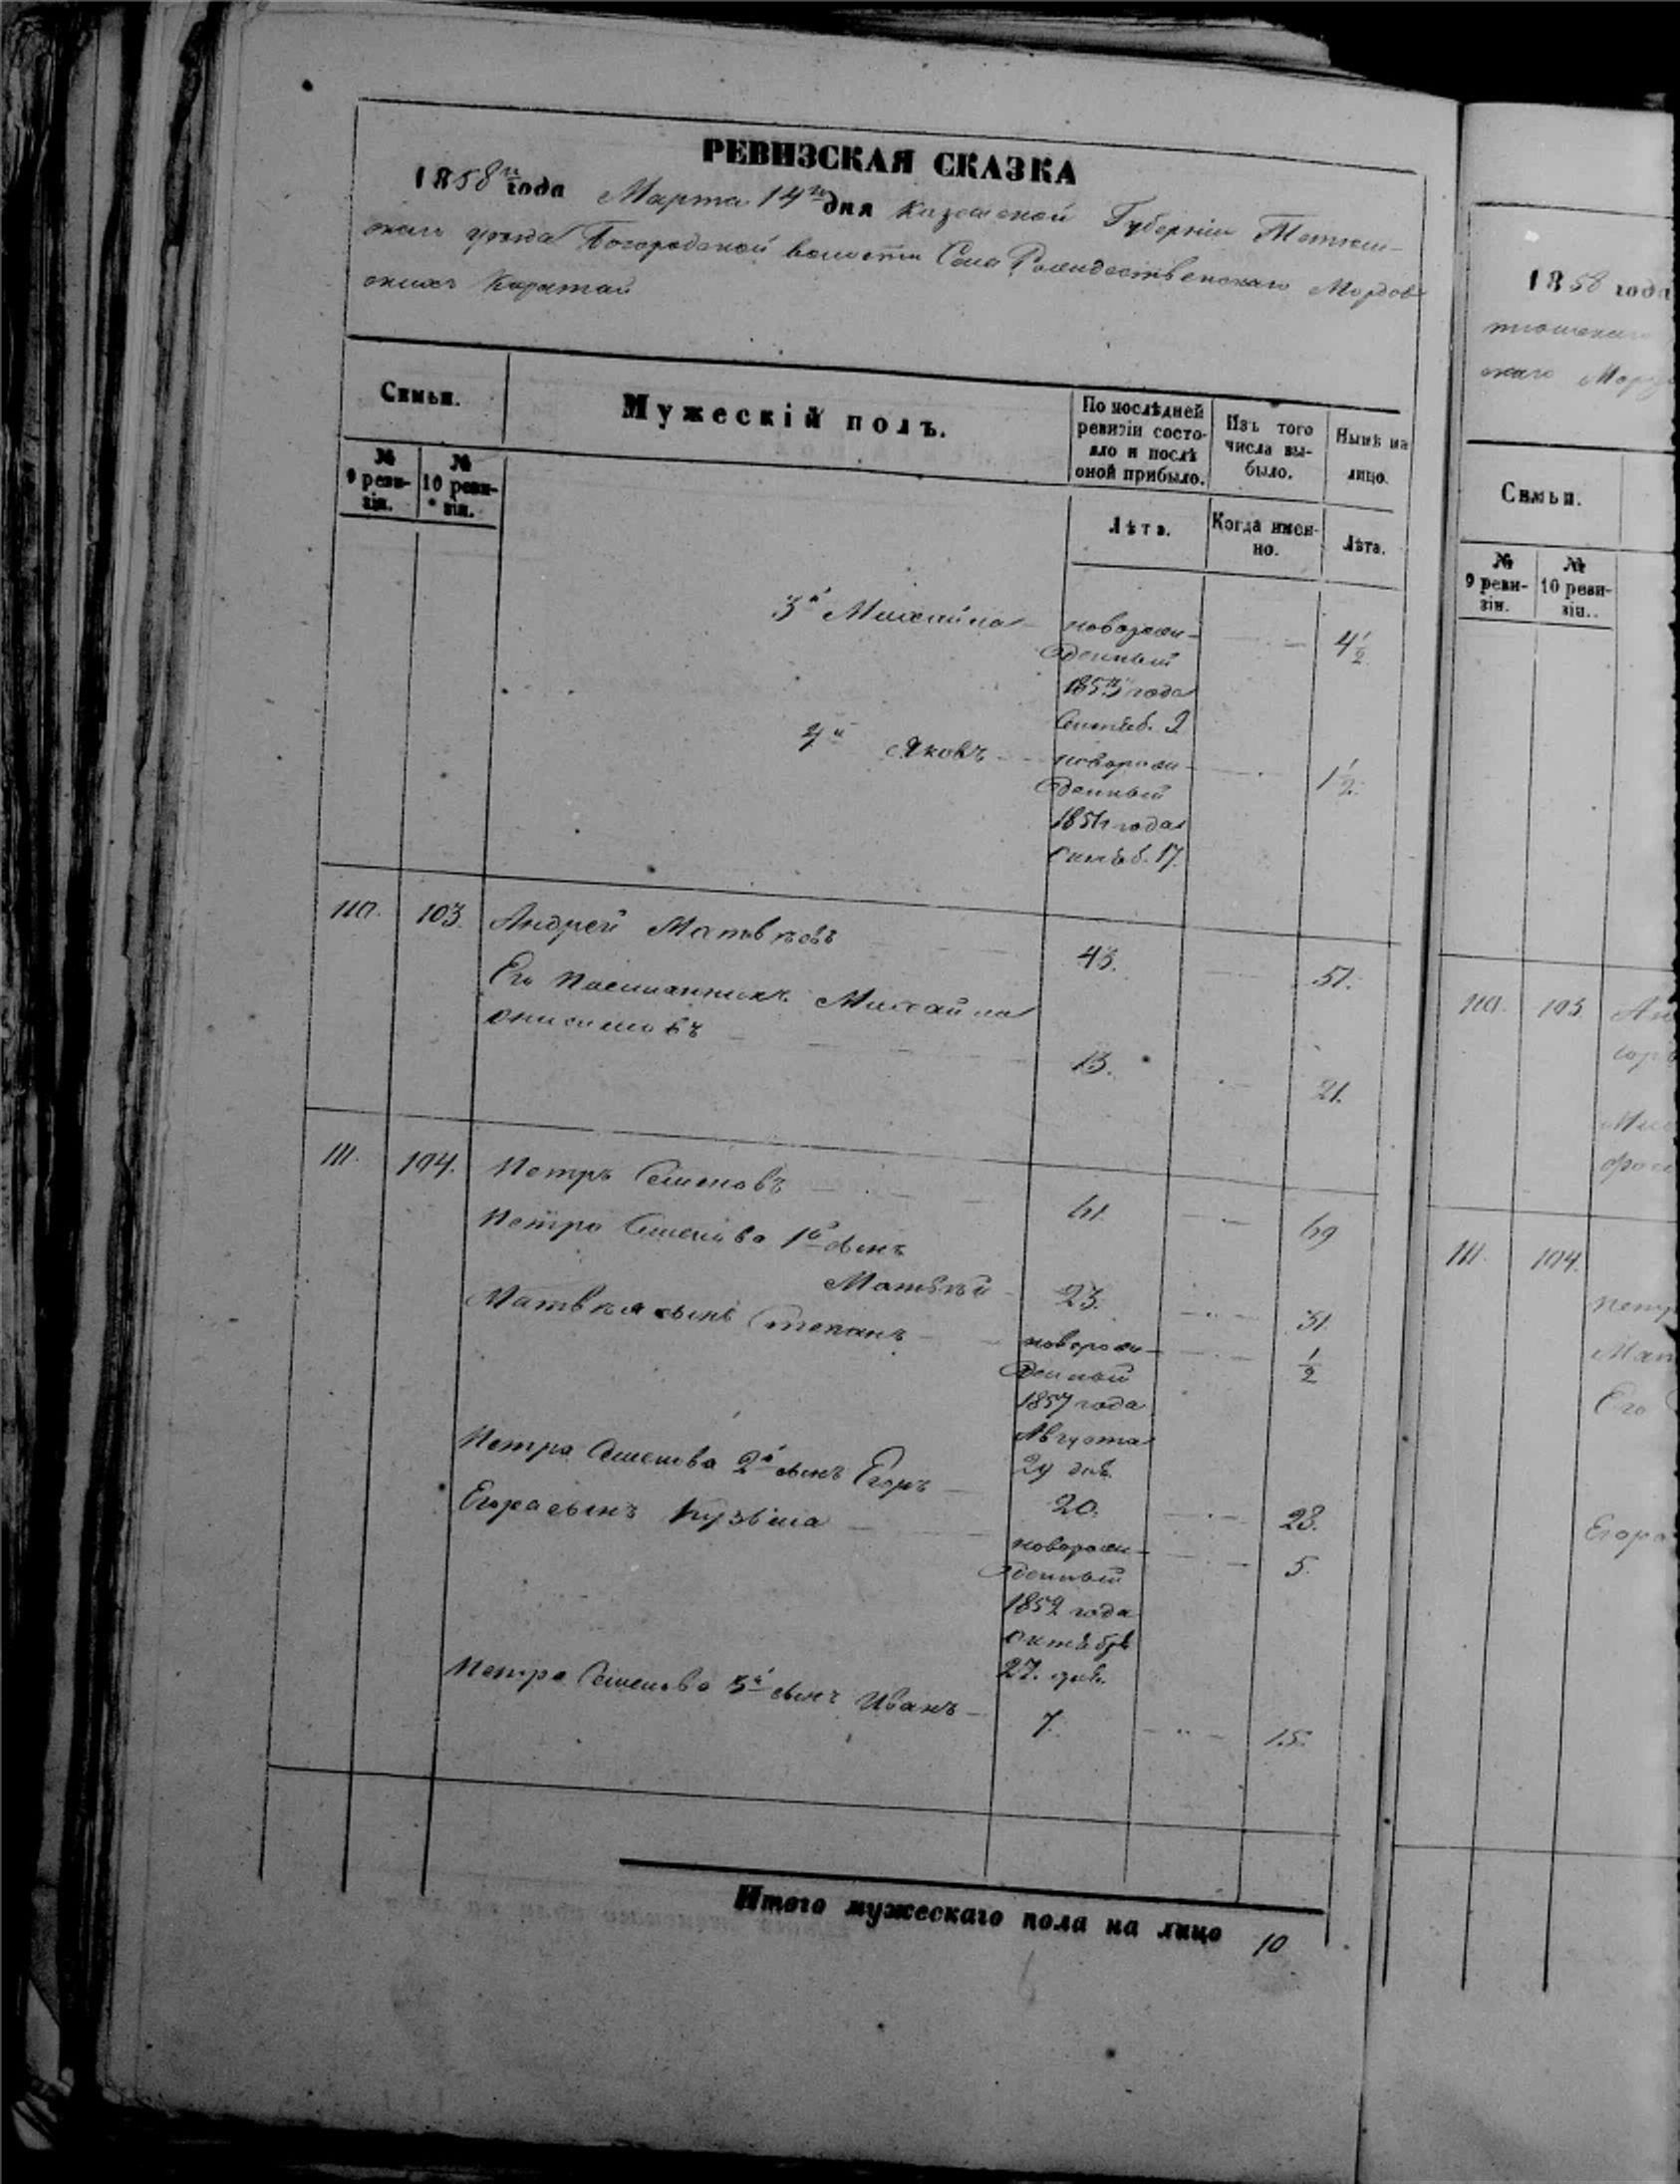 РЕВИЗСКАЯ СКАЗКА
1858го года Марта 14го дня Казанской Губерніи Тетюш-
скаго уѣзда Богородской волости Села Рождественскаго Мордов
скихъ Каратай
Семьи.
Мужескій полъ.
По послѣдней ревизіи состо-
яло и послѣ
оной прибыло.
Изъ того
числа вы-
было.
Нынѣ на
лицо.
№
9 реви-
зіи.
№
10 реви-
зіи.
Лѣта.
Когда имен-
но.
Лѣта.
3й Михайла новорож- 4 1/2
денный
1853 года
Сентяб. 2
4й Яковъ новорож- 1 1/2
денный
1856 года
Октяб. 17.
110. 103. Андрей Матвѣевъ 43. 51.
Его Племянникъ Михайла
Онисимовъ 13. 21.
111. 104. Петръ Семеновъ 61. 69
Петра Семенова 1й сынъ
Матвѣй 23. 31.
Матвѣя сынъ Степанъ новорож- 1/2
денный
1857 года
Августа
29 дня.
Петра Семенова 2й сынъ Егоръ 20. 28.
Егора сынъ Кузьма новорож- 5.
денный
1852 года
Октября
27. дня.
Петра Семенова 3й сынъ Иванъ 7. 15.
Итого мужескаго пола на лицо 10
1858 года
Семьи.
№
9 реви-
зіи.
№
10 реви-
зіи.
110. 103.
111. 104.
Его
Егора